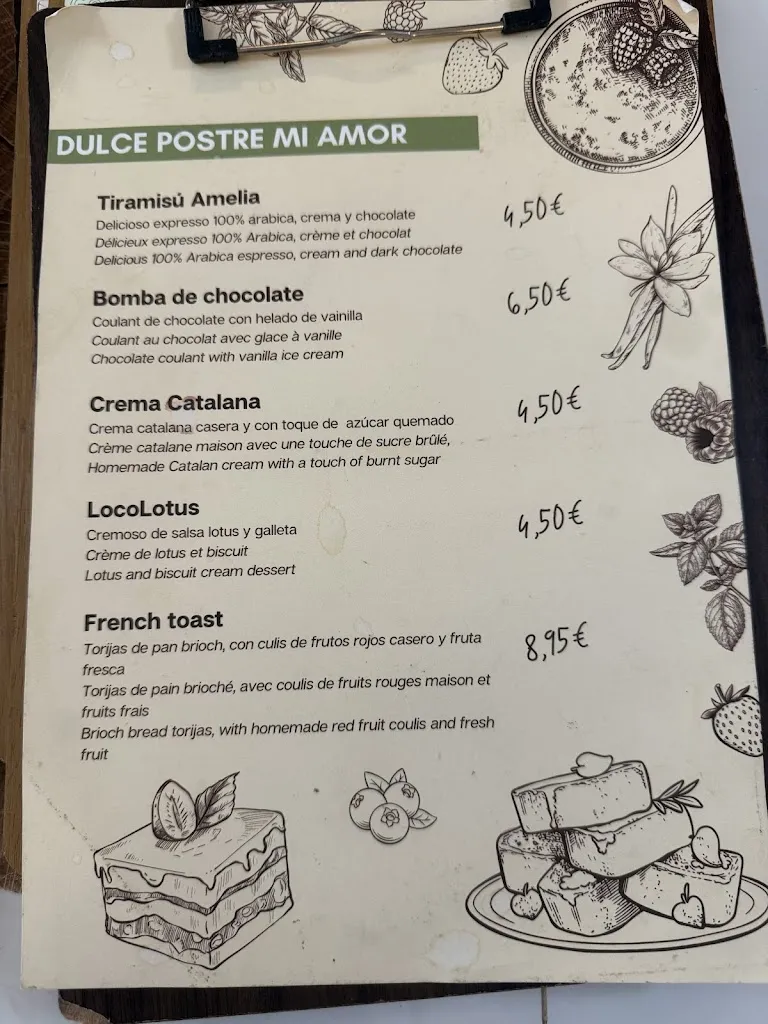 DULCE POSTRE MI AMOR
Tiramisú Amelia
Delicioso expresso 100% arabica, crema y chocolate
Délicieux expresso 100% Arabica, crème et chocolat
Delicious 100% Arabica espresso, cream and dark chocolate
4,50€
Bomba de chocolate
Coulant de chocolate con helado de vainilla
Coulant au chocolat avec glace à vanille
Chocolate coulant with vanilla ice cream
6,50€
Crema Catalana
Crema catalana casera y con toque de azúcar quemado
Crème catalane maison avec une touche de sucre brûlé,
Homemade Catalan cream with a touch of burnt sugar
4,50€
LocoLotus
Cremoso de salsa lotus y galleta
Crème de lotus et biscuit
Lotus and biscuit cream dessert
4,50€
French toast
Torijas de pan brioch, con culis de frutos rojos casero y fruta
fresca
Torijas de pain brioché, avec coulis de fruits rouges maison et
fruits frais
Brioch bread torijas, with homemade red fruit coulis and fresh
fruit
8,95€